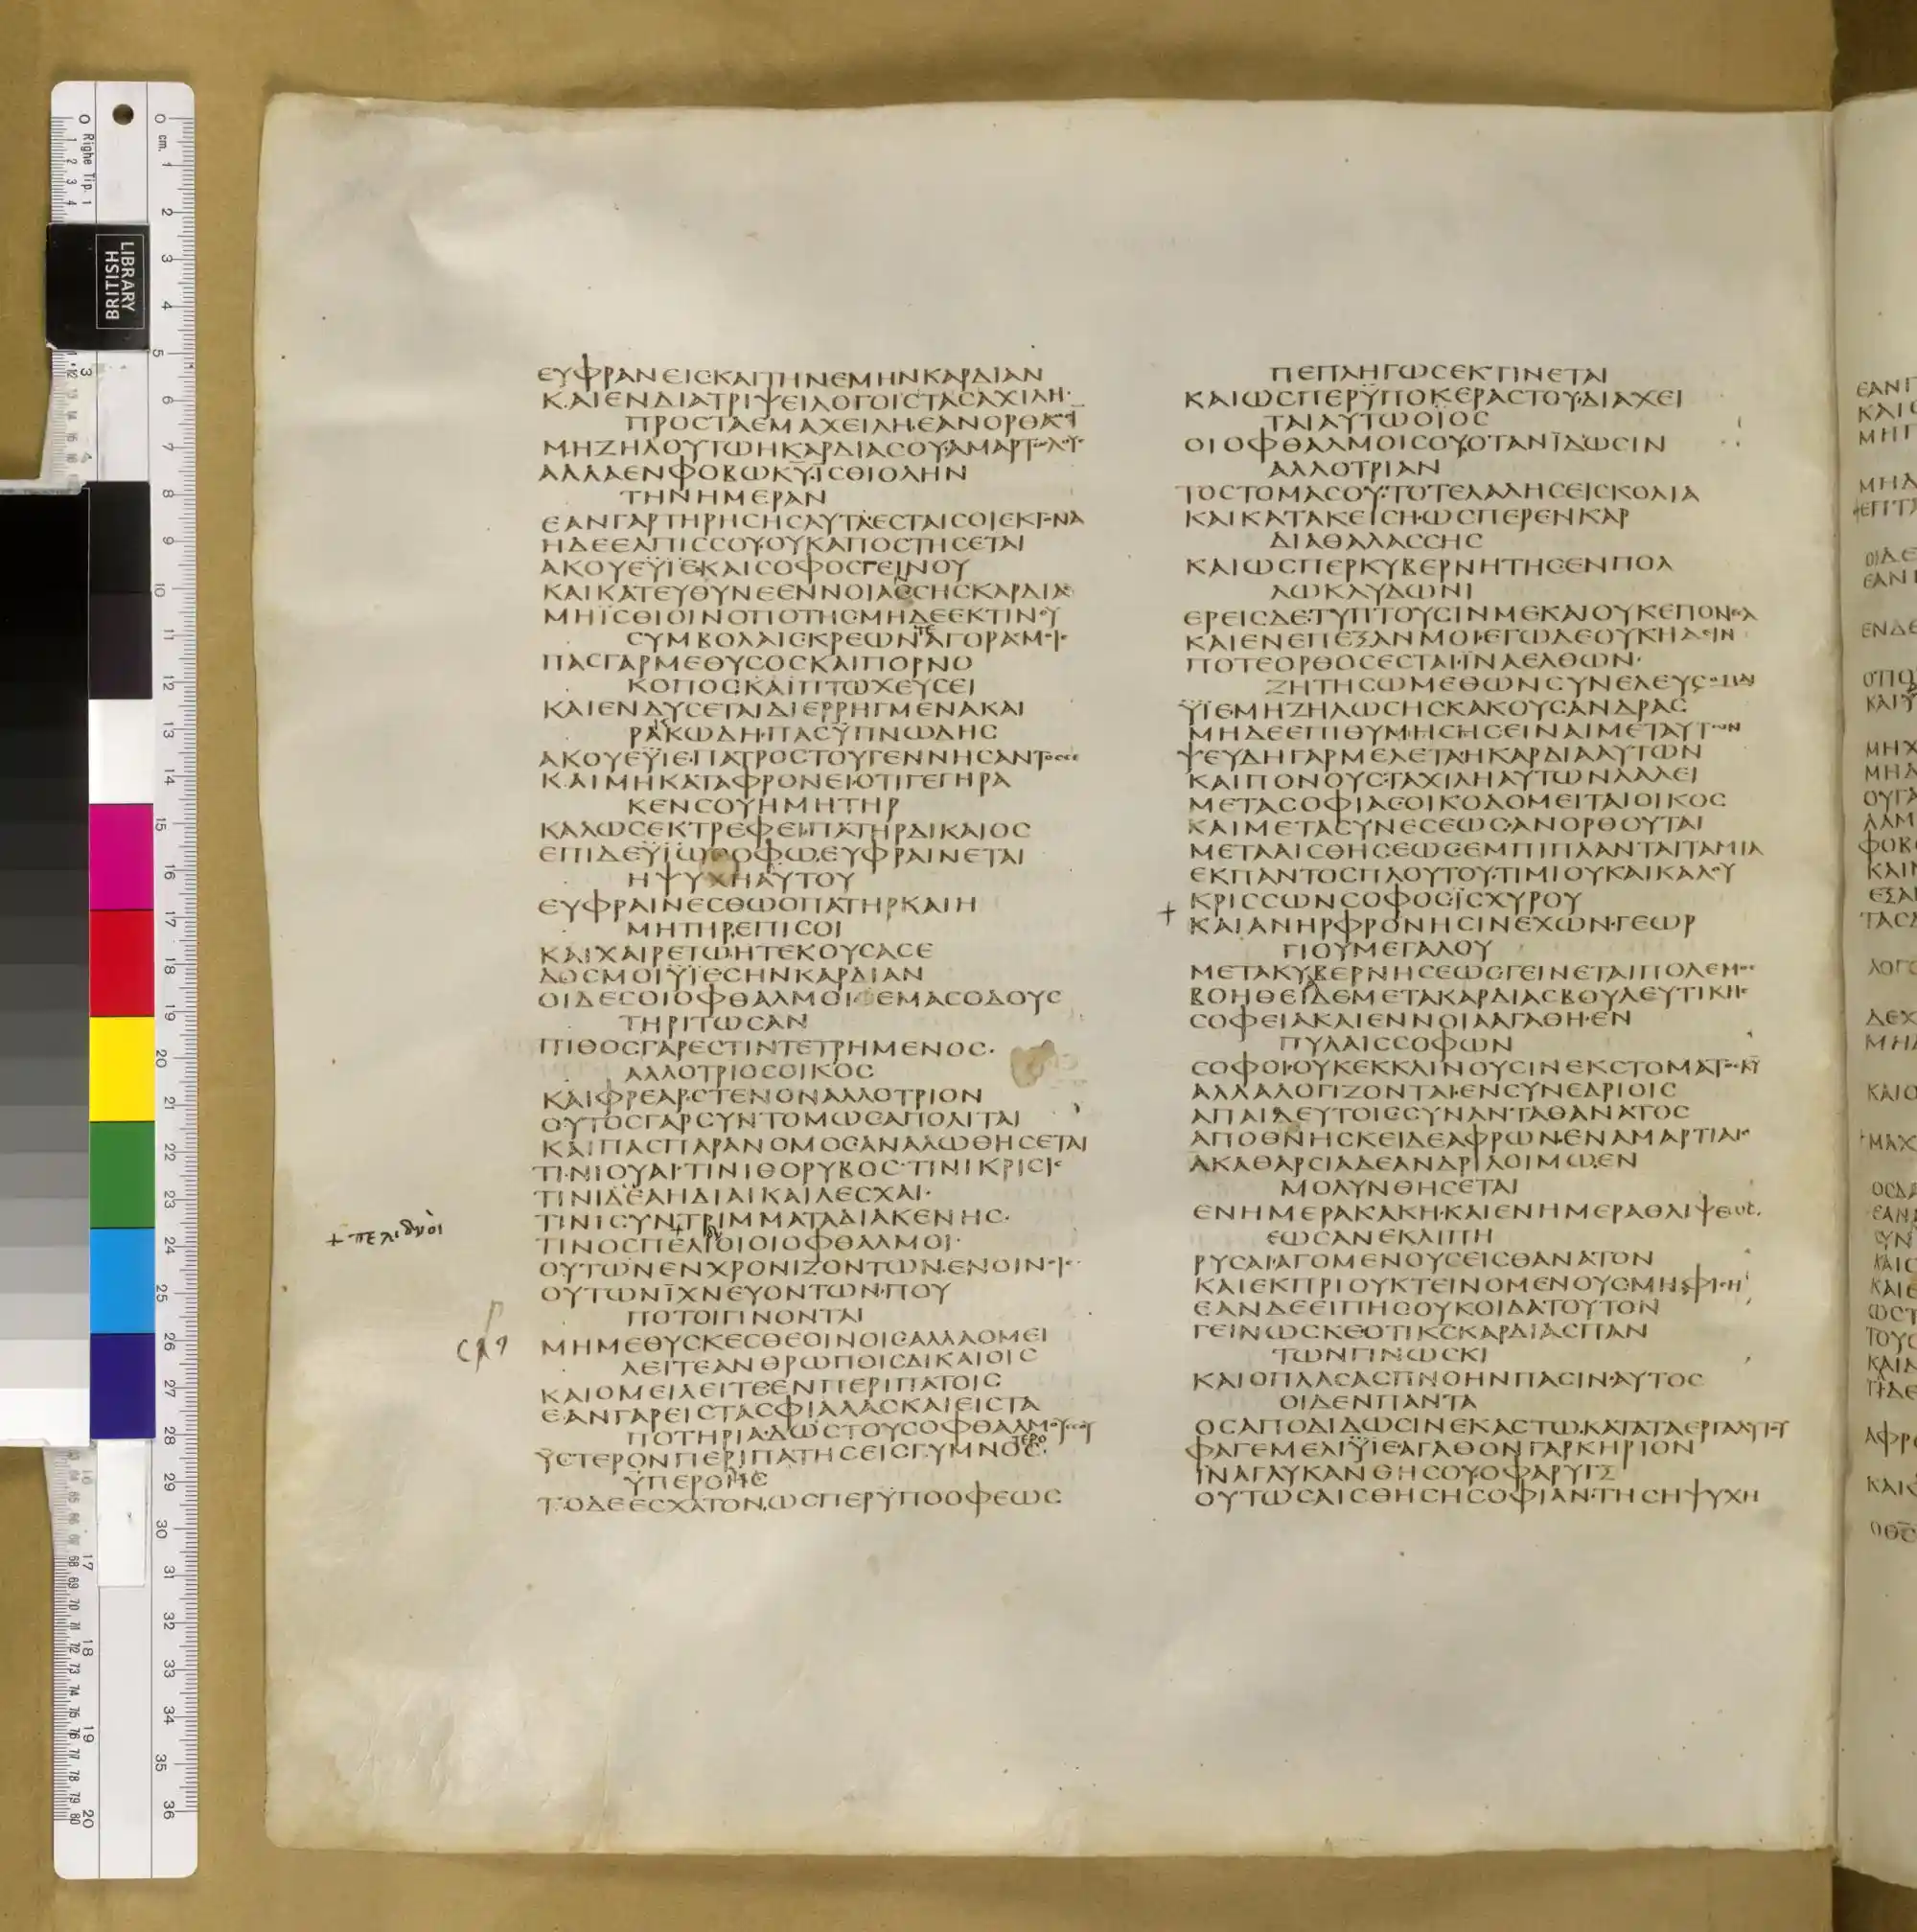 ΕΥΦΡΑΝΕΙϹΚΑΙΤΗΝΕΜΗΝΚΑΡΔΙΑΝ
ΚΑΙΕΝΔΙΑΤΡΙΨΕΙΛΟΓΟΙϹΤΑϹΑΧΙΛΗ·
ΠΡΟϹΤΑΕΜΑΧΕΙΛΗ·ΕΑΝΟΡΘΑ
ΜΗΖΗΛΟΥΤΩΗΚΑΡΔΙΑϹΟΥ·ΑΜΑΡΤΩΛΟΥ
ΑΛΛΑΕΝΦΟΒΩΚΥ·ΙϹΘΙΟΛΗΝ
ΤΗΝΗΜΕΡΑΝ
ΕΑΝΓΑΡΤΗΡΗϹΗϹΑΥΤΑΕϹΤΑΙϹΟΙΕΚΓΟΝΑ
ΗΔΕΕΛΠΙϹϹΟΥΟΥΚΑΠΟϹΤΗϹΕΤΑΙ
ΑΚΟΥΕΫΪΕΚΑΙϹΟΦΟϹΓΕΙΝΟΥ
ΚΑΙΚΑΤΕΥΘΥΝΕΕΝΝΟΙΑϹϹΗϹΚΑΡΔΙΑϹ
ΜΗΪϹΘΙΟΙΝΟΠΟΤΗϹΜΗΔΕΕΚΤΙΝΟΥ
ϹΥΜΒΟΛΑΙϹΚΡΕΩΝΤΕΑΓΟΡΑϹΜΟΙϹ
ΠΑϹΓΑΡΜΕΘΥϹΟϹΚΑΙΠΟΡΝΟ
ΚΟΠΟϹΚΑΙΠΤΩΧΕΥϹΕΙ
ΚΑΙΕΝΔΥϹΕΤΑΙΔΙΕΡΡΗΓΜΕΝΑΚΑΙ
ΡΑΚΩΔΗ·ΠΑϹΫΠΝΩΔΗϹ
ΑΚΟΥΕΫΙΕΠΑΤΡΟϹΤΟΥΓΕΝΝΗϹΑΝΤΟϹϹΕ
ΚΑΙΜΗΚΑΤΑΦΡΟΝΕΙ·ΟΤΙΓΕΓΗΡΑ
ΚΕΝϹΟΥΗΜΗΤΗΡ
ΚΑΛΩϹΕΚΤΡΕΦΕΙ·ΠΑΤΗΡΔΙΚΑΙΟϹ
ΕΠΙΔΕΫΪΩϹΟΦΩ·ΕΥΦΡΑΙΝΕΤΑΙ
ΗΨΥΧΗΑΥΤΟΥ
ΕΥΦΡΑΙΝΕϹΘΩΟΠΑΤΗΡΚΑΙΗ
ΜΗΤΗΡ·ΕΠΙϹΟΙ
ΚΑΙΧΑΙΡΕΤΩ·ΗΤΕΚΟΥϹΑϹΕ
ΔΟϹΜΟΙΫΪΕϹΗΝΚΑΡΔΙΑΝ
ΟΙΔΕϹΟΙΟΦΘΑΛΜΟΙ·ΕΜΑϹΟΔΟΥϹ
ΤΗΡΙΤΩϹΑΝ
ΠΙΘΟϹΓΑΡΕϹΤΙΝΤΕΤΡΗΜΕΝΟϹ·
ΑΛΛΟΤΡΙΟϹΟΙΚΟϹ
ΚΑΙΦΡΕΑΡ·ϹΤΕΝΟΝΑΛΛΟΤΡΙΟΝ
ΟΥΤΟϹΓΑΡϹΥΝΤΟΜΩϹΑΠΟΛΙΤΑΙ
ΚΑΙΠΑϹΠΑΡΑΝΟΜΟϹΑΝΑΛΩΘΗϹΕΤΑΙ
ΤΙΝΙΟΥΑΙ·ΤΙΝΙΘΟΡΥΒΟϹ·ΤΙΝΙΚΡΙϹΙϹ
ΤΙΝΙΔΕΑΗΔΙΑΙΚΑΙΛΕϹΧΑΙ·
ΤΙΝΙϹΥΝΤΡΙΜΜΑΤΑΔΙΑΚΕΝΗϹ·
ΤΙΝΟϹΠΕΛΙΟΙΟΙΟΦΘΑΛΜΟΙ·
+ πελιδνὸι
ΟΥΤΩΝΕΝΧΡΟΝΙΖΟΝΤΩΝ·ΕΝΟΙΝΟΙϹ
ΟΥΤΩΝΪΧΝΕΥΟΝΤΩΝ·ΠΟΥ
ΠΟΤΟΙΓΙΝΟΝΤΑΙ
ΜΗΜΕΘΥϹΚΕϹΘΕΟΙΝΟΙϹΑΛΛΑΟΜΕΙ
ΛΕΙΤΕΑΝΘΡΩΠΟΙϹΔΙΚΑΙΟΙϹ
ΚΑΙΟΜΕΙΛΕΙΤΕΕΝΠΕΡΙΠΑΤΟΙϹ
ΕΑΝΓΑΡΕΙϹΤΑϹΦΙΑΛΑϹΚΑΙΕΙϹΤΑ
ΠΟΤΗΡΙΑ·ΔΩϹΤΟΥϹΟΦΘΑΛΜΟΥϹϹΟΥ
ΫϹΤΕΡΟΝΠΕΡΙΠΑΤΗϹΕΙϹΓΥΜΝΟΤΕΡΟϹ
ΫΠΕΡΟΥ
ΤΟΔΕΕϹΧΑΤΟΝ·ΩϹΠΕΡΫΠΟΟΦΕΩϹ
ΠΕΠΛΗΓΩϹΕΚΤΙΝΕΤΑΙ
ΚΑΙΩϹΠΕΡΫΠΟΚΕΡΑϹΤΟΥ·ΔΙΑΧΕΙ
ΤΑΙΑΥΤΩΟΪΟϹ
ΟΙΟΦΘΑΛΜΟΙϹΟΥΟΤΑΝΪΔΩϹΙΝ
ΑΛΛΟΤΡΙΑΝ
ΤΟϹΤΟΜΑϹΟΥ·ΤΟΤΕΛΑΛΗϹΕΙϹΚΟΛΙΑ
ΚΑΙΚΑΤΑΚΕΙϹΗ·ΩϹΠΕΡΕΝΚΑΡ
ΔΙΑΘΑΛΑϹϹΗϹ
ΚΑΙΩϹΠΕΡΚΥΒΕΡΝΗΤΗϹΕΝΠΟΛ
ΛΩΚΛΥΔΩΝΙ
ΕΡΕΙϹΔΕ·ΤΥΠΤΟΥϹΙΝΜΕΚΑΙΟΥΚΕΠΟΝΕϹΑ
ΚΑΙΕΝΕΠΕΞΑΝΜΟΙ·ΕΓΩΔΕΟΥΚΗΔΕΙΝ
ΠΟΤΕΟΡΘΟϹΕϹΤΑΙ·ΪΝΑΕΛΘΩΝ·
ΖΗΤΗϹΩΜΕΘΩΝϹΥΝΕΛΕΥϹΟΜΑΙ
ΫΪΕΜΗΖΗΛΩϹΗϹΚΑΚΟΥϹΑΝΔΡΑϹ
ΜΗΔΕΕΠΙΘΥΜΗϹΗϹΕΙΝΑΙΜΕΤΑΥΤΩΝ
ΨΕΥΔΗΓΑΡΜΕΛΕΤΑ·ΗΚΑΡΔΙΑΑΥΤΩΝ
ΚΑΙΠΟΝΟΥϹ·ΤΑΧΙΛΗΑΥΤΩΝΛΑΛΕΙ
ΜΕΤΑϹΟΦΙΑϹΟΙΚΟΔΟΜΕΙΤΑΙΟΙΚΟϹ
ΚΑΙΜΕΤΑϹΥΝΕϹΕΩϹ·ΑΝΟΡΘΟΥΤΑΙ
ΜΕΤΑΑΙϹΘΗϹΕΩϹΕΜΠΙΠΛΑΝΤΑΙΤΑΜΙΑ
ΕΚΠΑΝΤΟϹΠΛΟΥΤΟΥ·ΤΙΜΙΟΥΚΑΙΚΑΛΟΥ
ΚΡΙϹϹΩΝϹΟΦΟϹΪϹΧΥΡΟΥ
ΚΑΙΑΝΗΡΦΡΟΝΗϹΙΝΕΧΩΝ·ΓΕΩΡ
ΓΙΟΥΜΕΓΑΛΟΥ
ΜΕΤΑΚΥΒΕΡΝΗϹΕΩϹΓΕΙΝΕΤΑΙΠΟΛΕΜΟϹ
ΒΟΗΘΕΙΔΕΜΕΤΑΚΑΡΔΙΑϹΒΟΥΛΕΥΤΙΚΗϹ
ϹΟΦΕΙΑΚΑΙΕΝΝΟΙΑΑΓΑΘΗ·ΕΝ
ΠΥΛΑΙϹϹΟΦΩΝ
ϹΟΦΟΙ·ΟΥΚΕΚΚΛΙΝΟΥϹΙΝΕΚϹΤΟΜΑΤΟϹΚΥ
ΑΛΛΑΛΟΓΙΖΟΝΤΑΙ·ΕΝϹΥΝΕΔΡΙΟΙϹ
ΑΠΑΙΔΕΥΤΟΙϹϹΥΝΑΝΤΑΘΑΝΑΤΟϹ
ΑΠΟΘΝΗϹΚΕΙΔΕΑΦΡΩΝΕΝΑΜΑΡΤΙΑΙϹ
ΑΚΑΘΑΡϹΙΑΔΕΑΝΔΡΙΛΟΙΜΩ·ΕΝ
ΜΟΛΥΝΘΗϹΕΤΑΙ
ΕΝΗΜΕΡΑΚΑΚΗ·ΚΑΙΕΝΗΜΕΡΑΘΛΙΨΕΩϹ
ΕΩϹΑΝΕΚΛΙΠΗ
ΡΥϹΑΙ·ΑΓΟΜΕΝΟΥϹΕΙϹΘΑΝΑΤΟΝ
ΚΑΙΕΚΠΡΙΟΥΚΤΕΙΝΟΜΕΝΟΥϹ·ΜΗΦΙϹΗ
ΕΑΝΔΕΕΙΠΗϹΟΥΚΟΙΔΑΤΟΥΤΟΝ
ΓΕΙΝΩϹΚΕΟΤΙΚϹΚΑΡΔΙΑϹΠΑΝ
ΤΩΝΓΙΝΩϹΚΙ
ΚΑΙΟΠΛΑϹΑϹΠΝΟΗΝΠΑϹΙΝ·ΑΥΤΟϹ
ΟΙΔΕΝΠΑΝΤΑ
ΟϹΑΠΟΔΙΔΩϹΙΝΕΚΑϹΤΩ·ΚΑΤΑΤΑΕΡΓΑΑΥΤΟΥ
ΦΑΓΕΜΕΛΙΫΪΕΑΓΑΘΟΝΓΑΡΚΗΡΙΟΝ
ΪΝΑΓΛΥΚΑΝΘΗϹΟΥΟΦΑΡΥΓΞ
ΟΥΤΩϹΑΙϹΘΗϹΗϹΟΦΙΑΝ·ΤΗϹΗΨΥΧΗ
LIBRARY
BRITISH
Righe Tip. 1
cm.